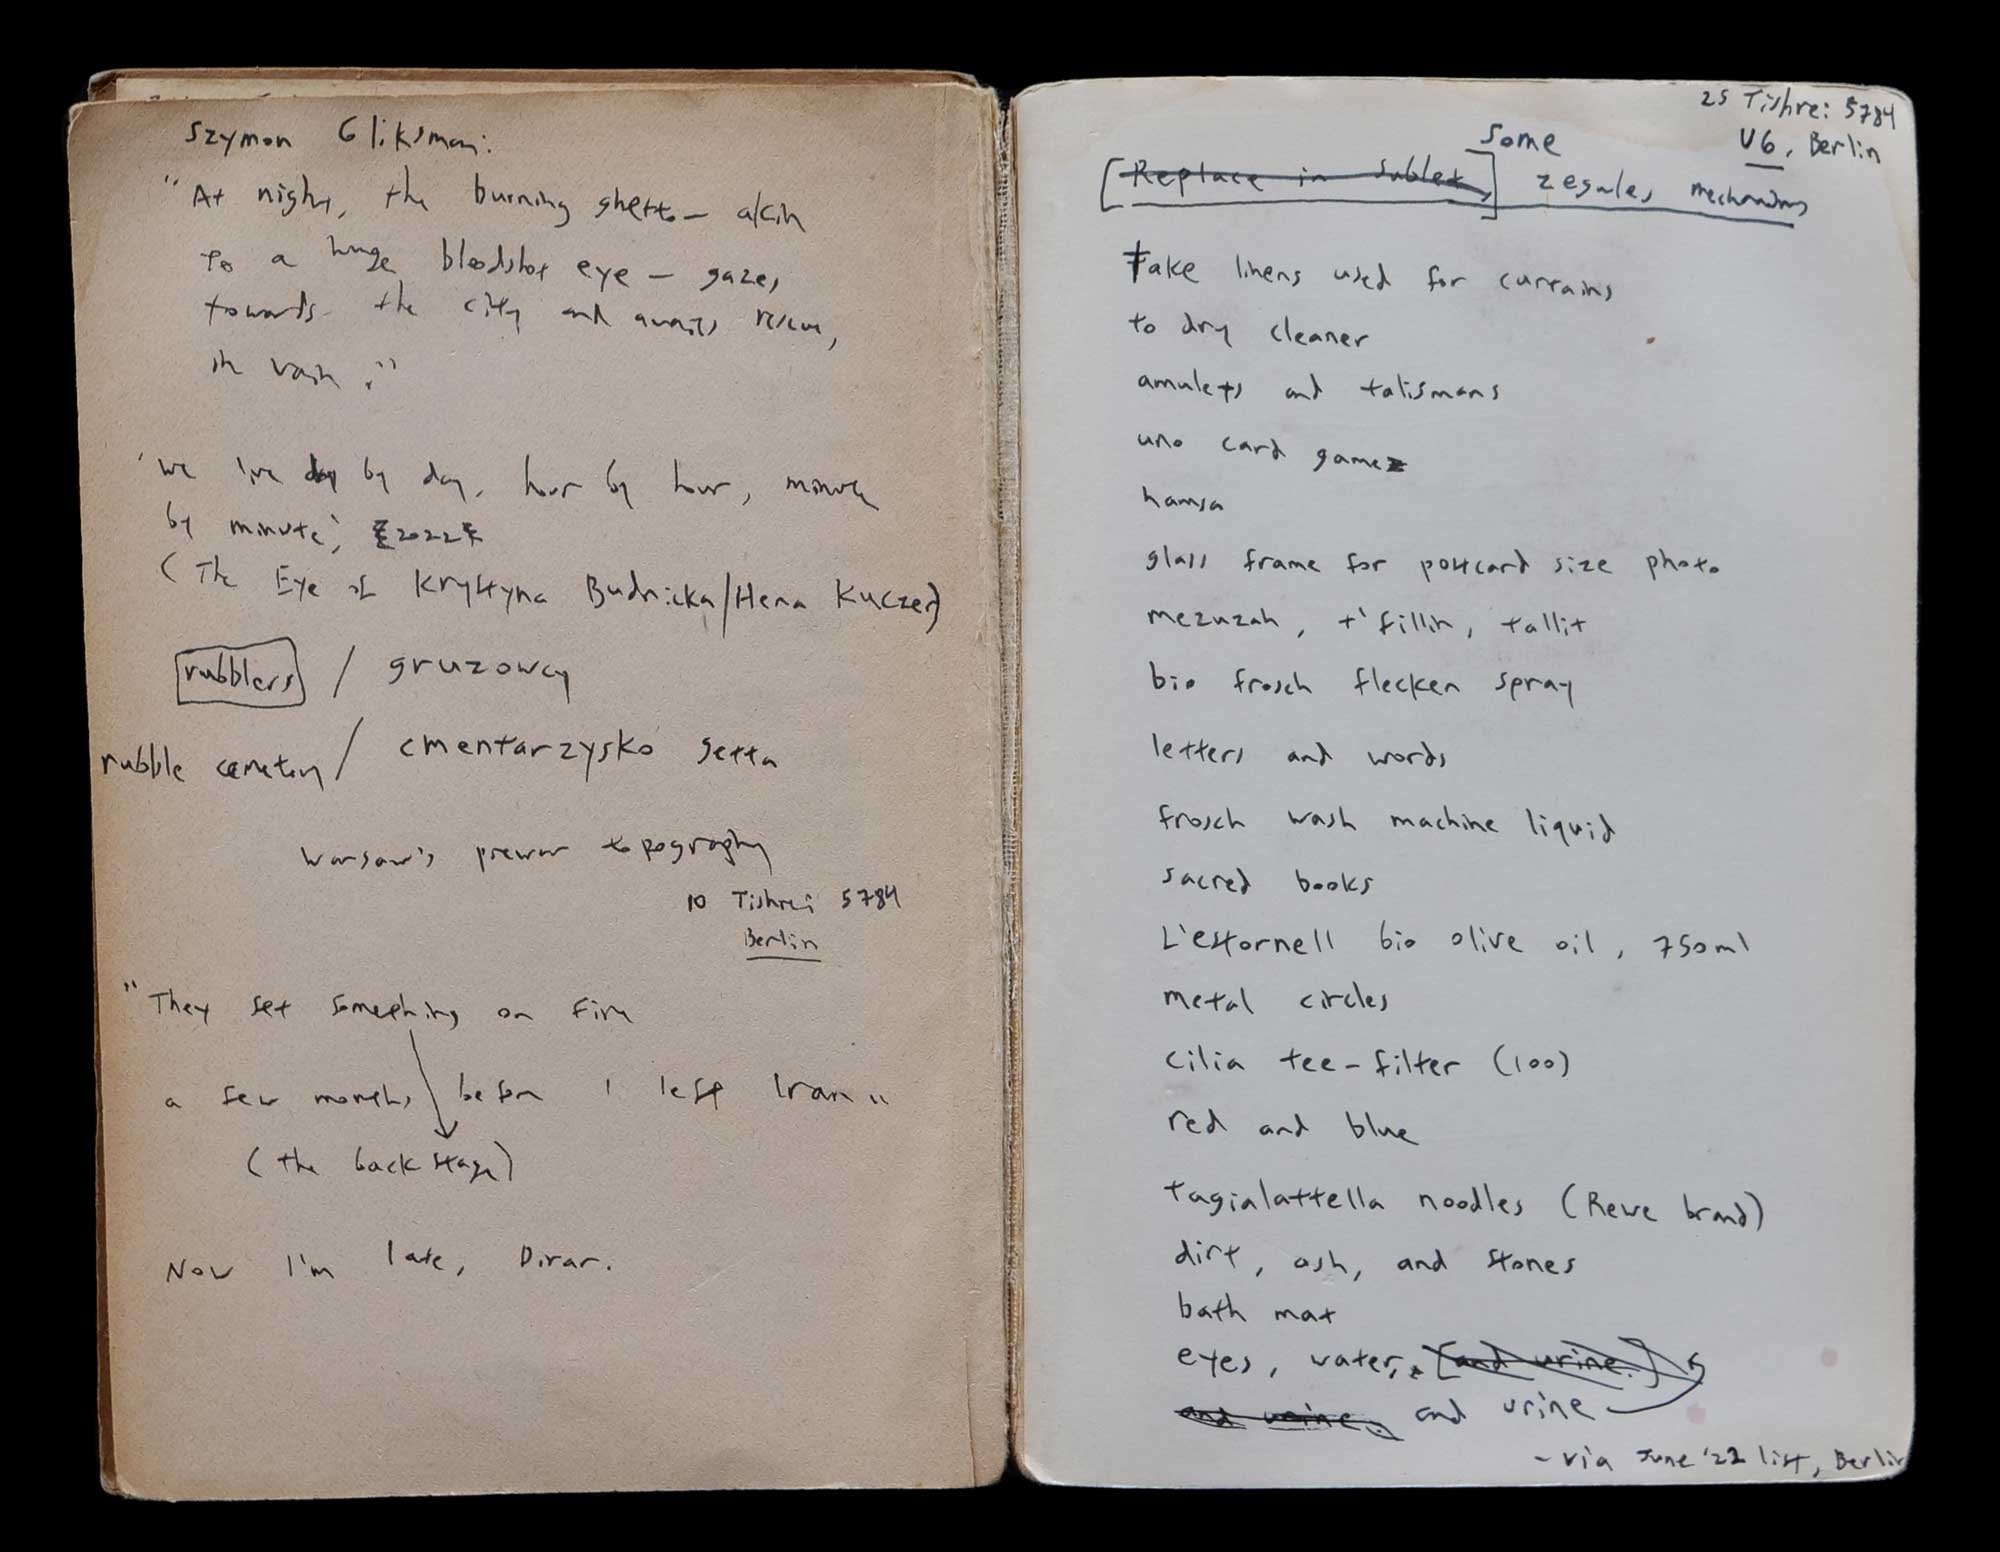 Szymon Gliksman:
"At night, the burning ghetto – akin
to a huge bloodshot eye – gazes
towards the city and awaits rescue,
in vain."
'we live day by day, hour by hour, minute
by minute', [2022]
(The Eye of Krystyna Budnicka/Hena Kuczer)
rubblers / gruzowcy
rubble cemetery / cmentarzysko getta
Warsaw's prewar topography
10 Tishrei 5784
Berlin
"They set something on fire
a few months before I left Iran"
(the backstage)
Now I'm late, Dirar.
25 Tishrei 5784
U6, Berlin
some
[Replace in sublet] zegules, mechanisms
Take linens used for curtains
to dry cleaner
amulets and talismans
uno card game
hamsa
glass frame for postcard size photo
mezuzah, t'fillin, tallit
bio frosch flecken spray
letters and words
frosch wash machine liquid
sacred books
L'estornell bio olive oil, 750ml
metal circles
cilia tee-filter (100)
red and blue
tagialattella noodles (Rewe brand)
dirt, ash, and stones
bath mat
eyes, water, [and urine.]
and urine. and urine
– via June '22 list, Berlin